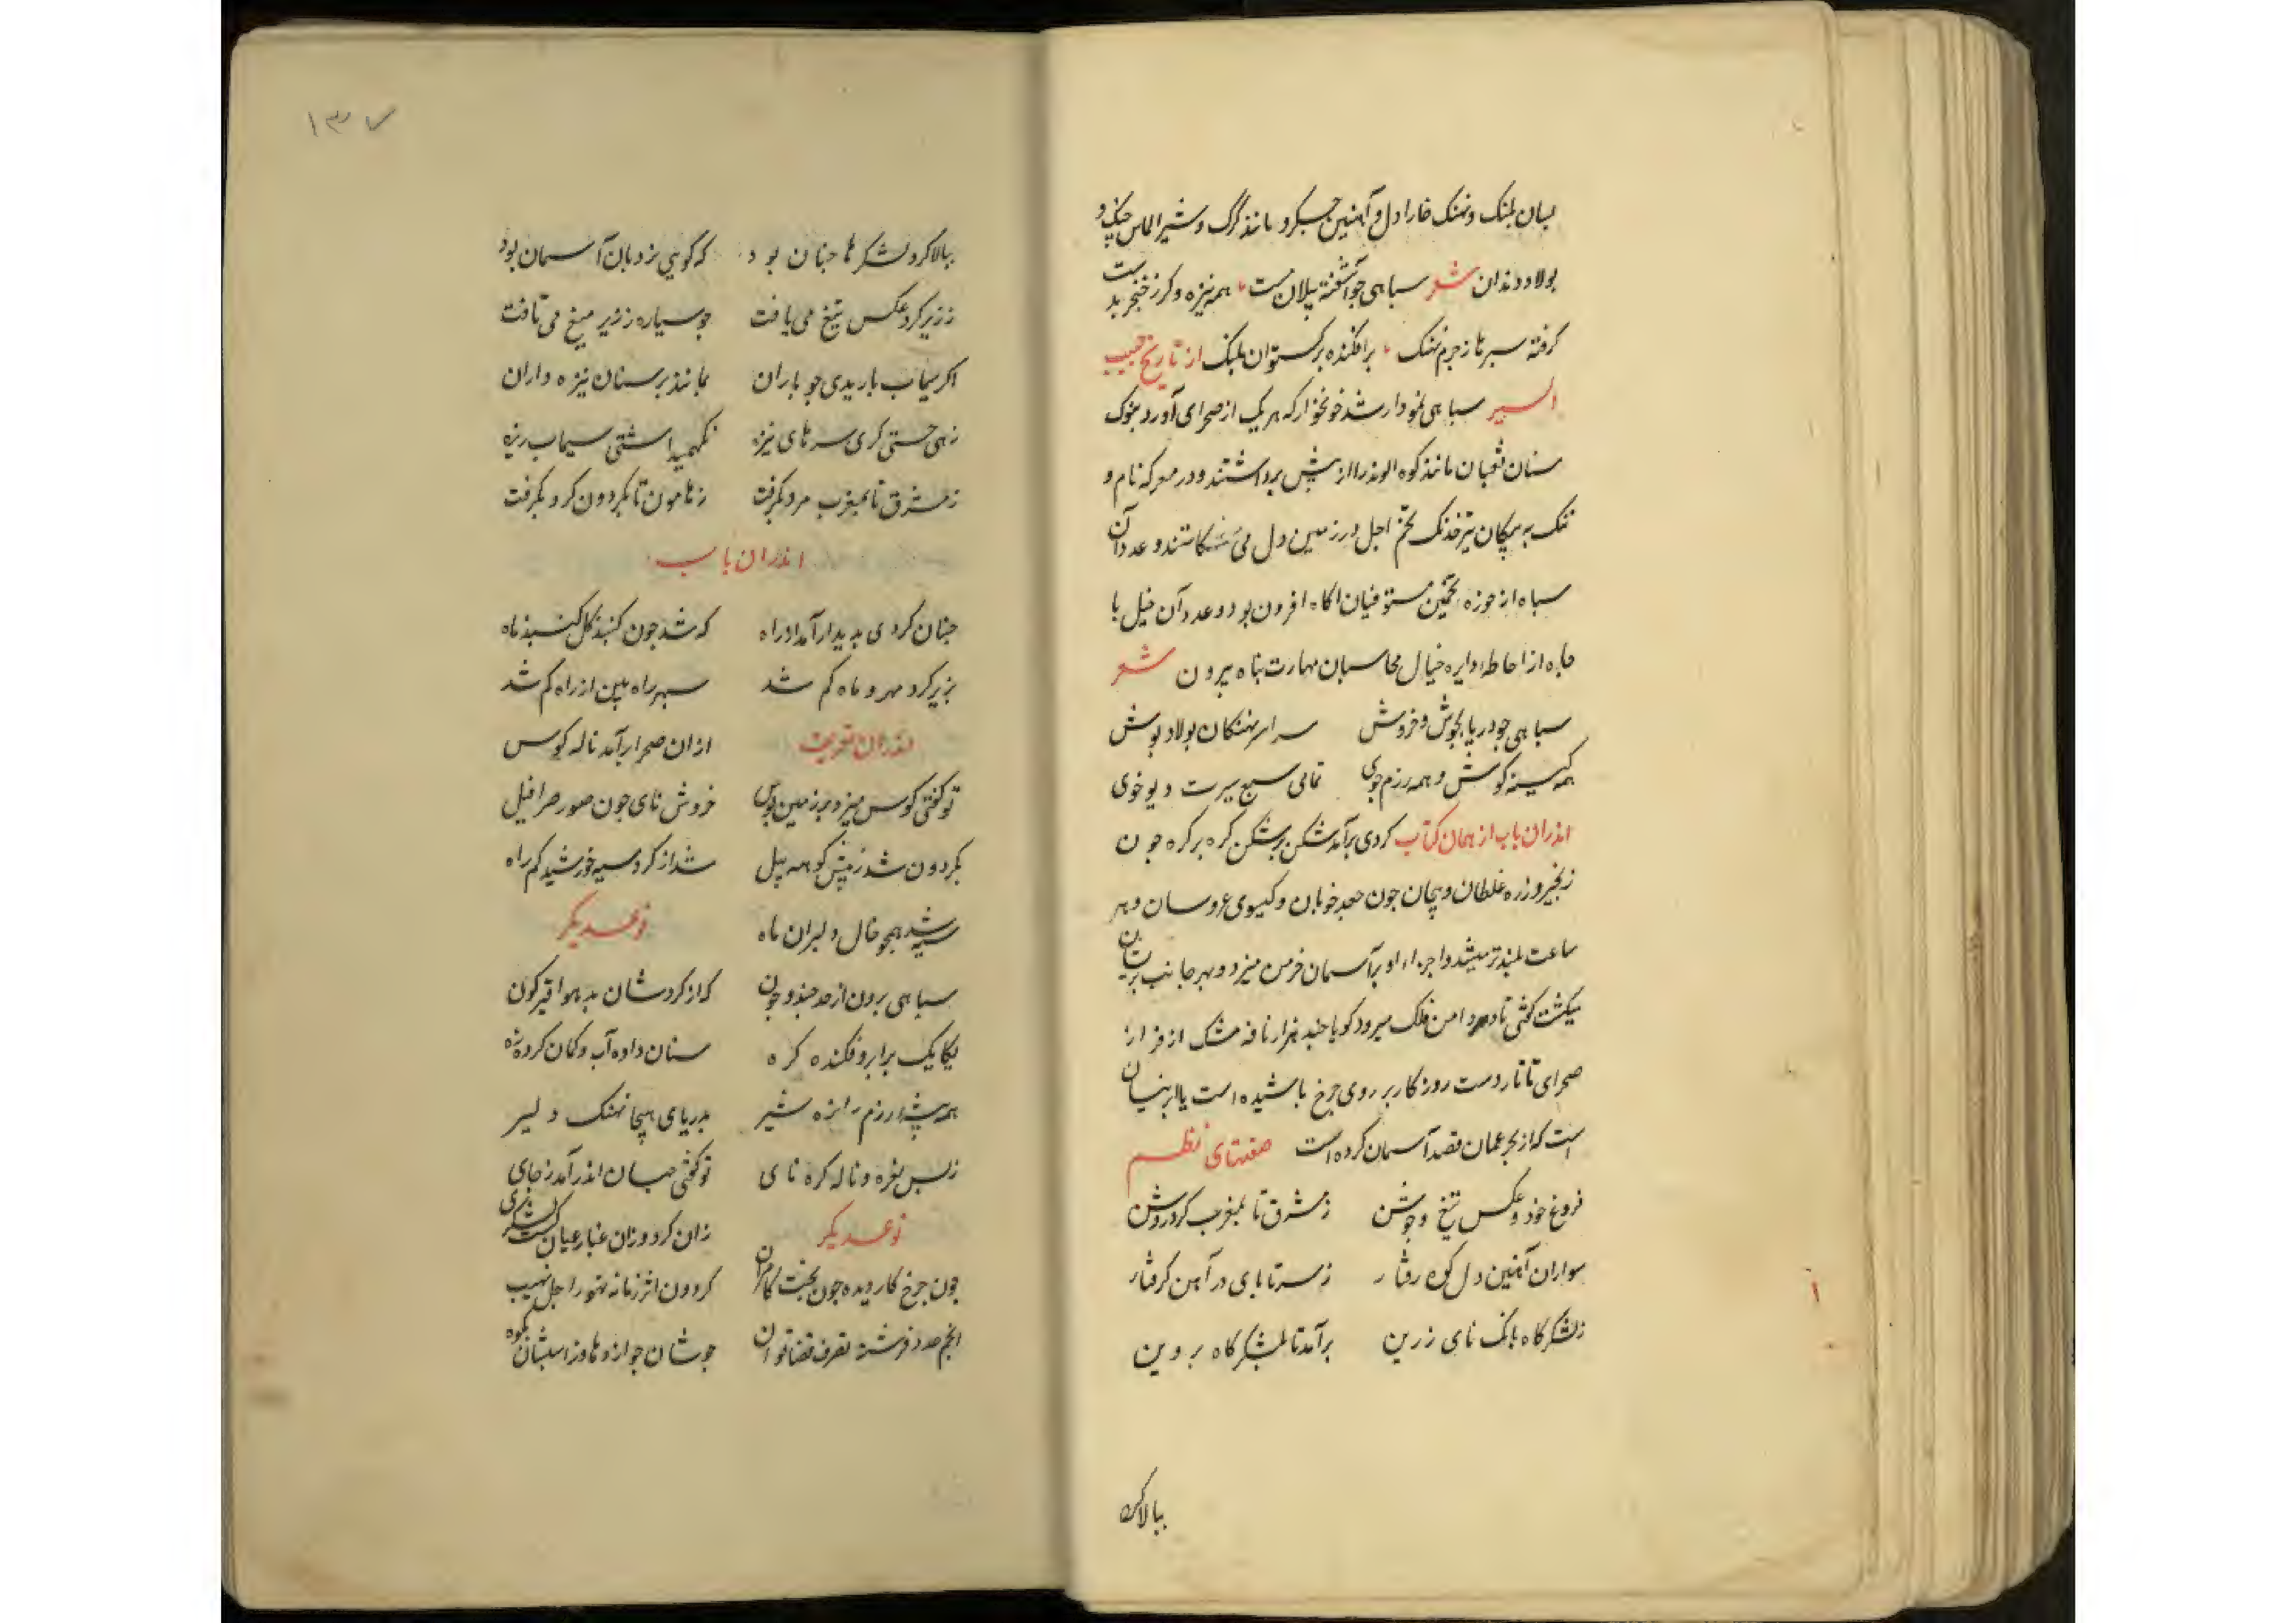 بسان پلنک ونهنک خارا دل و آهنین جکر و مانند کرک و شیر الماس چنک و
بولاد دندان شعر سباهی جو آشفته پیلان مست همه نیزه و کرز و خنجر بدست
کرفته سبرها ز جرم نهنک برافکنده برکستوان پلنک از تاریخ حبیب
السیر سباهی نمودار شد خونخوار که هر یک از صحرای آورد بنوک
سنان ثعبان مانند کوه الوند را از پیش برداشتند و در معرکه نام و
ننک به پیکان تیر خدنک تخم اجل در زمین دل می کاشتند و عدد آن
سباه از حوزه تخمین مستوفیان اکاه افزون بود و عدد آن خیل با
جاه از احاطه دایره خیال محاسبان مهارت بناه بیرون شعر
سباهی جو دریا بجوش و خروش سراسر نهنکان بولاد بوش
همه کینه کوش و همه رزم جوی تمامی سبع سیرت دیو خوی
اندران باب از همان کتاب کردی برآمد شکن بر شکن کره بر کره جون
زنجیر و زره غلطان و پیجان جون جعد خوبان و کیسوی عروسان و هر
ساعت بلندتر میشد و اجزاء او بر آسمان خرمن میزد و بهر جانب
میکشت کفتی تا دامن فلک میرود کویا جند هزار نافه مشک از فراز
صحرای تاتار دست روزکار بر روی جرخ باشیده است یا ابر نیسان
است که از بحر عمان قصد آسمان کرده است هفتتای نظم
فروغ خود و عکس تیغ و جوشن ز مشرق تا بمغرب کرد روشن
سواران آهنین دل کوه رفتار ز سر تا بای در آهن کرفتار
ز لشکرکاه بانک نای زرین برآمد تا بلشکرکاه بروین
ببالا کرد
۱۳۷
ببالا کرد لشکرها جنان بود که کویی نردبان آسمان بود
ز زیر کرد عکس تیغ می یافت جو سیاره ز زیر میغ می تافت
اکر سیماب باریدی جو باران بماندی بر سنان نیزه داران
زهی جستی کری سرهای نیزه نکهمیداشتی سیماب ریزه
ز مشرق تا بمغرب مرد بکرفت ز هامون تا بکردون کرد بکرفت
اندران باب
جنان کردی بدیدار آمد از راه که شد جون کنبد کل کنبد ماه
بزیر کرد مهر و ماه کم شد سبهر راه بین از راه کم شد
اندران تعریف ازان صحرا برآمد ناله کوس
تو کفتی کوس میزد بر زمین بوس خروش نای جون صور صرافیل
بکردون شد ز پیش کوهه پیل شد از کرد سیه خورشید کم راه
سیه شد همجو خال دلبران ماه نوعدیکر
سباهی برون از حد جند و جون که از کردشان بد هوا قیرکون
یکایک بر ابرو فکنده کره سنان داده آب و کمان کرده زه
همه بیشه رزم را نره شیر بدریای هیجا نهنک دلیر
ز بس نعره و ناله کره نای تو کفتی جهان اندر آمد ز جای
نوعدیکر زان کرد و زان غبار عیان کشت لشکری
جون جرخ کاردیده جون بخت کامران کردون اثر زمانه تهور اجل نهیب
انجم عدد فرشته تصرف قضا توان جوشان جو اژدها و ز